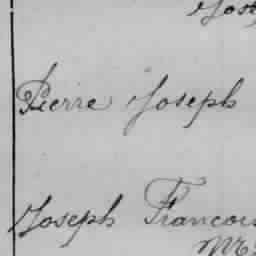 Pierre Joseph
Joseph Francois